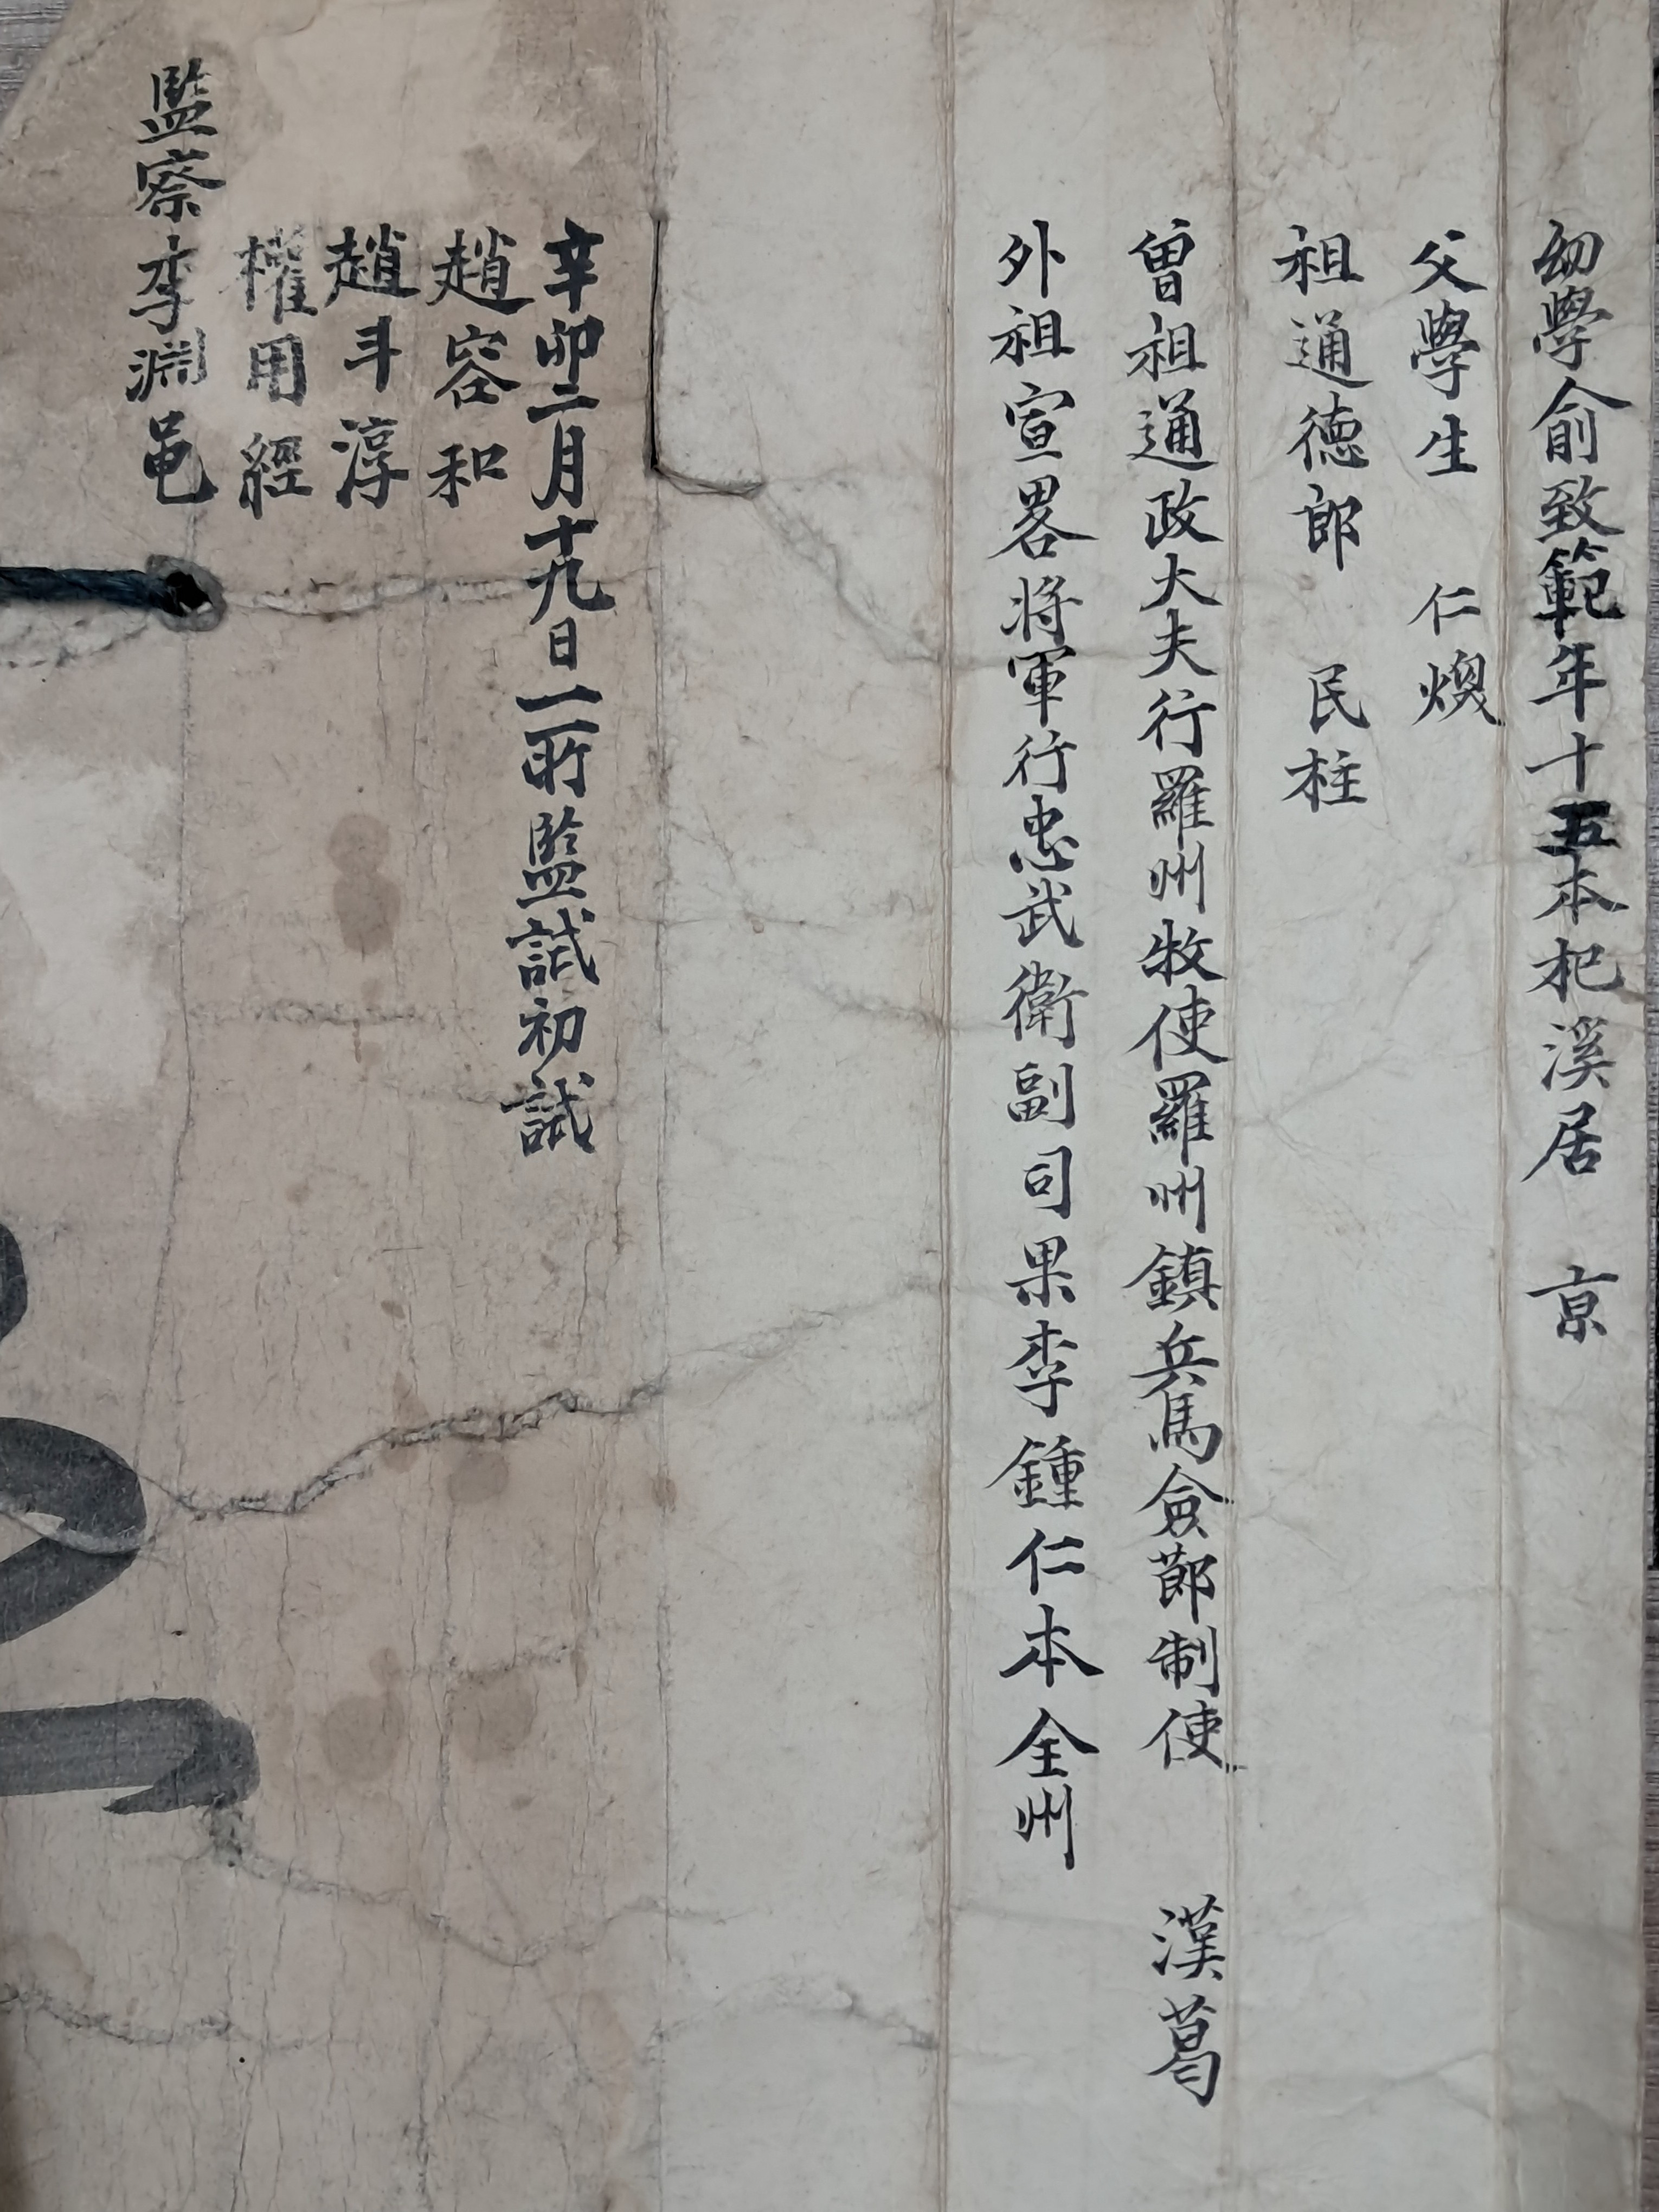 幼學俞致範年十五本杞溪居 京
父學生 仁煥
祖通德郎 民柱
曾祖通政大夫行羅州牧使羅州鎮兵馬僉節制使 漢葛
外祖宣畧將軍行忠武衛副司果李鍾仁本全州
辛卯二月十九日二所監試初試
趙容和
趙斗淳
權用經
監察李淵邑